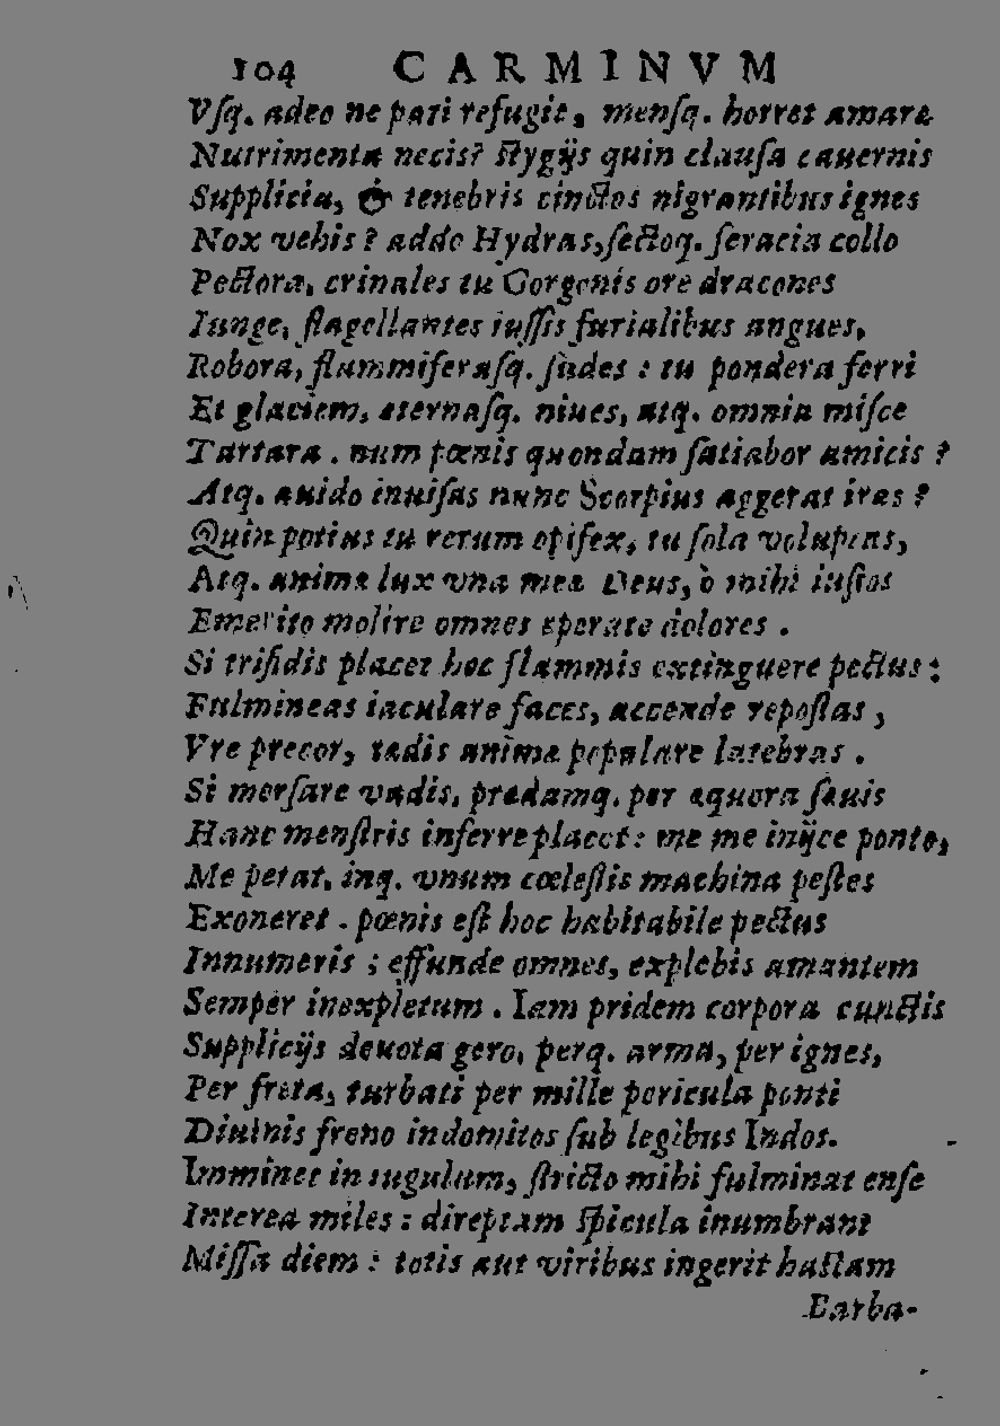 104 CARMINVM
Vſq. adeo ne pati refugit, menſq. horret amara
Nutrimenta necis? Stygijs quin clauſa cauernis
Supplicia, & tenebris cinctos nigrantibus ignes
Nox vehis? adde Hydras, ſectoq. feracia collo
Pectora, crinales tu Gorgonis ore dracones
Iunge, flagellantes iuſſis furialibus angues,
Robora, flammiferaſq. ſudes: tu pondera ferri
Et glaciem, æternaſq. niues, atq. omnia miſce
Tartara. num pœnis quondam ſatiabor amicis?
Atq. auido inuiſas nunc Scorpius aggerat iras?
Quin potius tu rerum opifex, tu ſola voluptas,
Atq. animæ lux vna meæ Deus, ò mihi iuſtos
Emerito molire omnes sperate dolores.
Si trifidis placet hoc flammis extinguere pectus:
Fulmineas iaculare faces, accende repoſtas,
Vre precor, tædis animæ populare latebras.
Si merſare vadis, prædamq. per æquora ſæuis
Hanc monſtris inferre placet: me me inijce ponto,
Me petat, inq. vnum cœleſtis machina peſtes
Exoneret. pœnis eſt hoc habitabile pectus
Innumeris; effunde omnes, explebis amantem
Semper inexpletum. Iam pridem corpora cunctis
Supplicijs deuota gero, perq. arma, per ignes,
Per freta, turbati per mille pericula ponti
Diuinis freno indomitos ſub legibus Indos.
Imminet in iugulum, ſtricto mihi fulminat enſe
Interea miles: direptam ſpicula inumbrant
Miſſa diem: totis aut viribus ingerit haſtam
Barba-